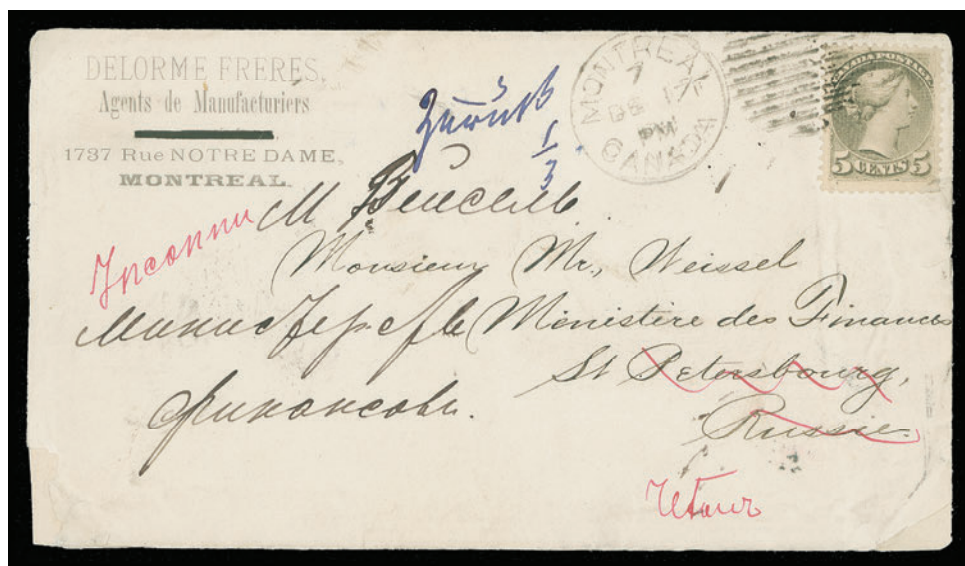 DELORME FRERES,
Agents de Manufacturiers
1737 Rue NOTRE DAME,
MONTREAL.
Zurück
1/3
MONTREAL
7
DE 17
PM
CANADA
CANADA POSTAGE
5 CENTS 5
Inconnu
М Вейссель
Monsieur Mr., Weissel
Министерство Ministère des Finances
Финансовъ.
St Petersbourg,
Russie.
Retour